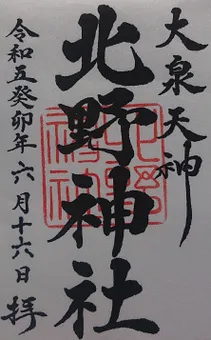 大泉天神
北野神社
令和五癸卯年 六月十六日 拝